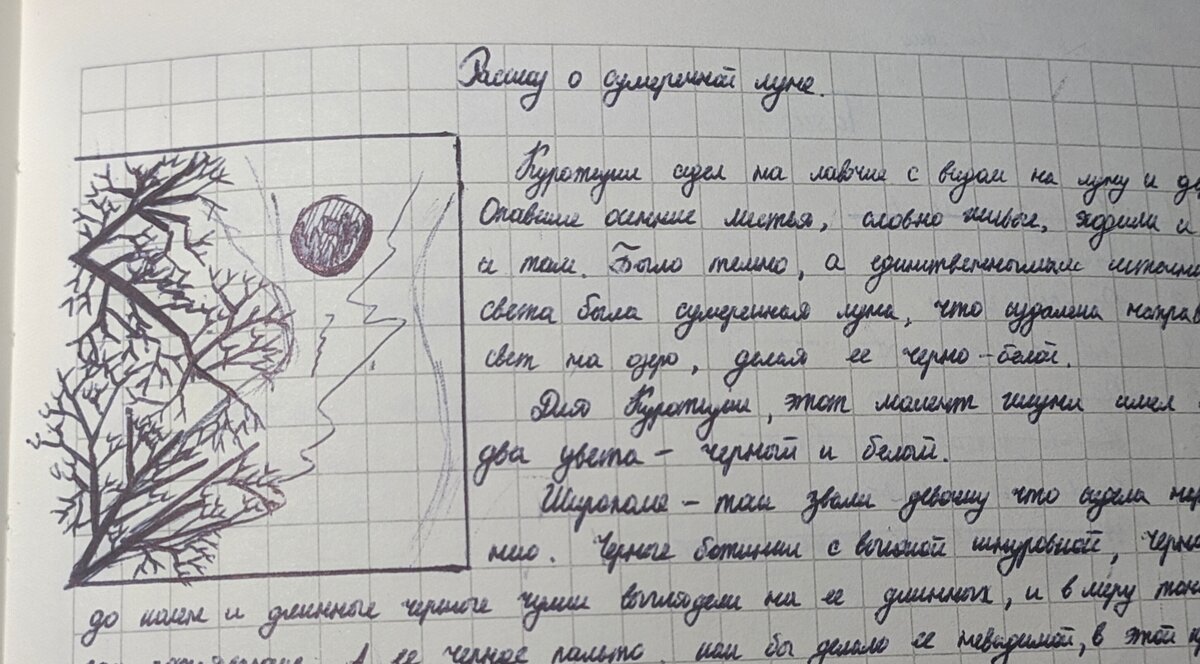 Расскажу о сумеречной луне.
Куротцуши сидел на лавочке с видом на луну и
Опавшие осенние листья, словно живые, ходили и
и там. Было темно, а единственным
света была сумеречная луна, что направ
свет на озеро, делая ее черно-белой.
Для Куротцуши, этот момент жизни имел
два цвета – черный и белый.
– так звали девочку что сидела
нию. Черные ботинки с высокой шнуровкой, черн
до колен и длинные черные чулки выглядели на ее длинных, и в меру тон
А ее черное пальто, как бы делало ее невидимой, в этой